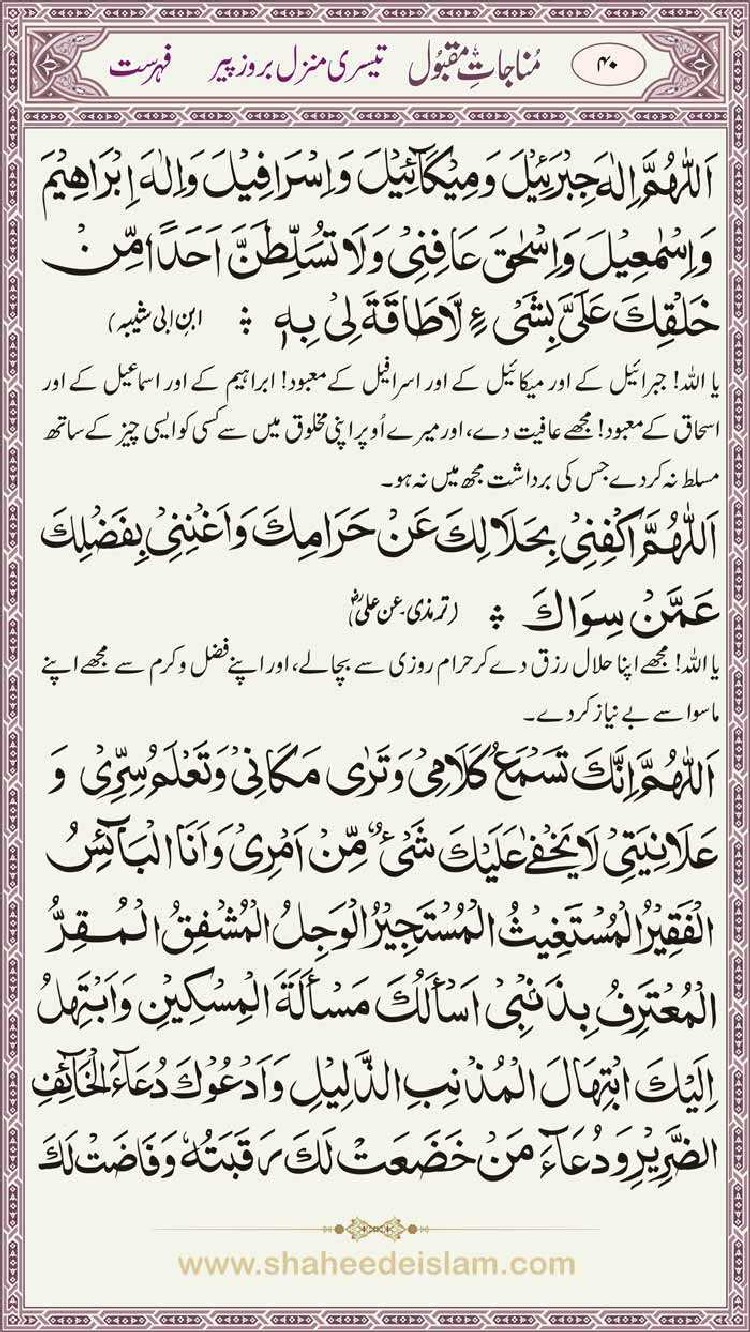 ۴۰ مُناجاتِ مقبُول تیسری منزل بروز پیر فہرست
اَللّٰهُمَّ اِلٰهَ جِبْرَئِيْلَ وَمِيْكَآئِيْلَ وَاِسْرَافِيْلَ وَاِلٰهَ اِبْرَاهِيْمَ
وَاِسْمٰعِيْلَ وَاِسْحٰقَ عَافِنِيْ وَلَا تُسَلِّطَنَّ اَحَدًا مِّنْ
خَلْقِكَ عَلَيَّ بِشَيْءٍ لَّا طَاقَةَ لِيْ بِهٖ ؞ (ابن ابی شیبہ)
یا اللہ! جبرائیل کے اور میکائیل کے اور اسرافیل کے معبود! ابراہیم کے اور اسماعیل کے اور
اسحاق کے معبود! مجھے عافیت دے، اور میرے اُوپر اپنی مخلوق میں سے کسی کو ایسی چیز کے ساتھ
مسلط نہ کر دے جس کی برداشت مجھ میں نہ ہو۔
اَللّٰهُمَّ اكْفِنِيْ بِحَلَالِكَ عَنْ حَرَامِكَ وَاَغْنِنِيْ بِفَضْلِكَ
عَمَّنْ سِوَاكَ ؞ (ترمذی عن علیؓ)
یا اللہ! مجھے اپنا حلال رزق دے کر حرام روزی سے بچالے، اور اپنے فضل و کرم سے مجھے اپنے
ماسوا سے بے نیاز کر دے۔
اَللّٰهُمَّ اِنَّكَ تَسْمَعُ كَلَامِيْ وَتَرٰى مَكَانِيْ وَتَعْلَمُ سِرِّيْ وَ
عَلَانِيَتِيْ لَا يَخْفٰى عَلَيْكَ شَيْءٌ مِّنْ اَمْرِيْ وَاَنَا الْبَآئِسُ
الْفَقِيْرُ الْمُسْتَغِيْثُ الْمُسْتَجِيْرُ الْوَجِلُ الْمُشْفِقُ الْمُقِرُّ
الْمُعْتَرِفُ بِذَنْبِيْ اَسْأَلُكَ مَسْأَلَةَ الْمِسْكِيْنِ وَاَبْتَهِلُ
اِلَيْكَ ابْتِهَالَ الْمُذْنِبِ الذَّلِيْلِ وَاَدْعُوْكَ دُعَآءَ الْخَآئِفِ
الضَّرِيْرِ وَدُعَآءَ مَنْ خَضَعَتْ لَكَ رَقَبَتُهٗ وَفَاضَتْ لَكَ
www.shaheedeislam.com